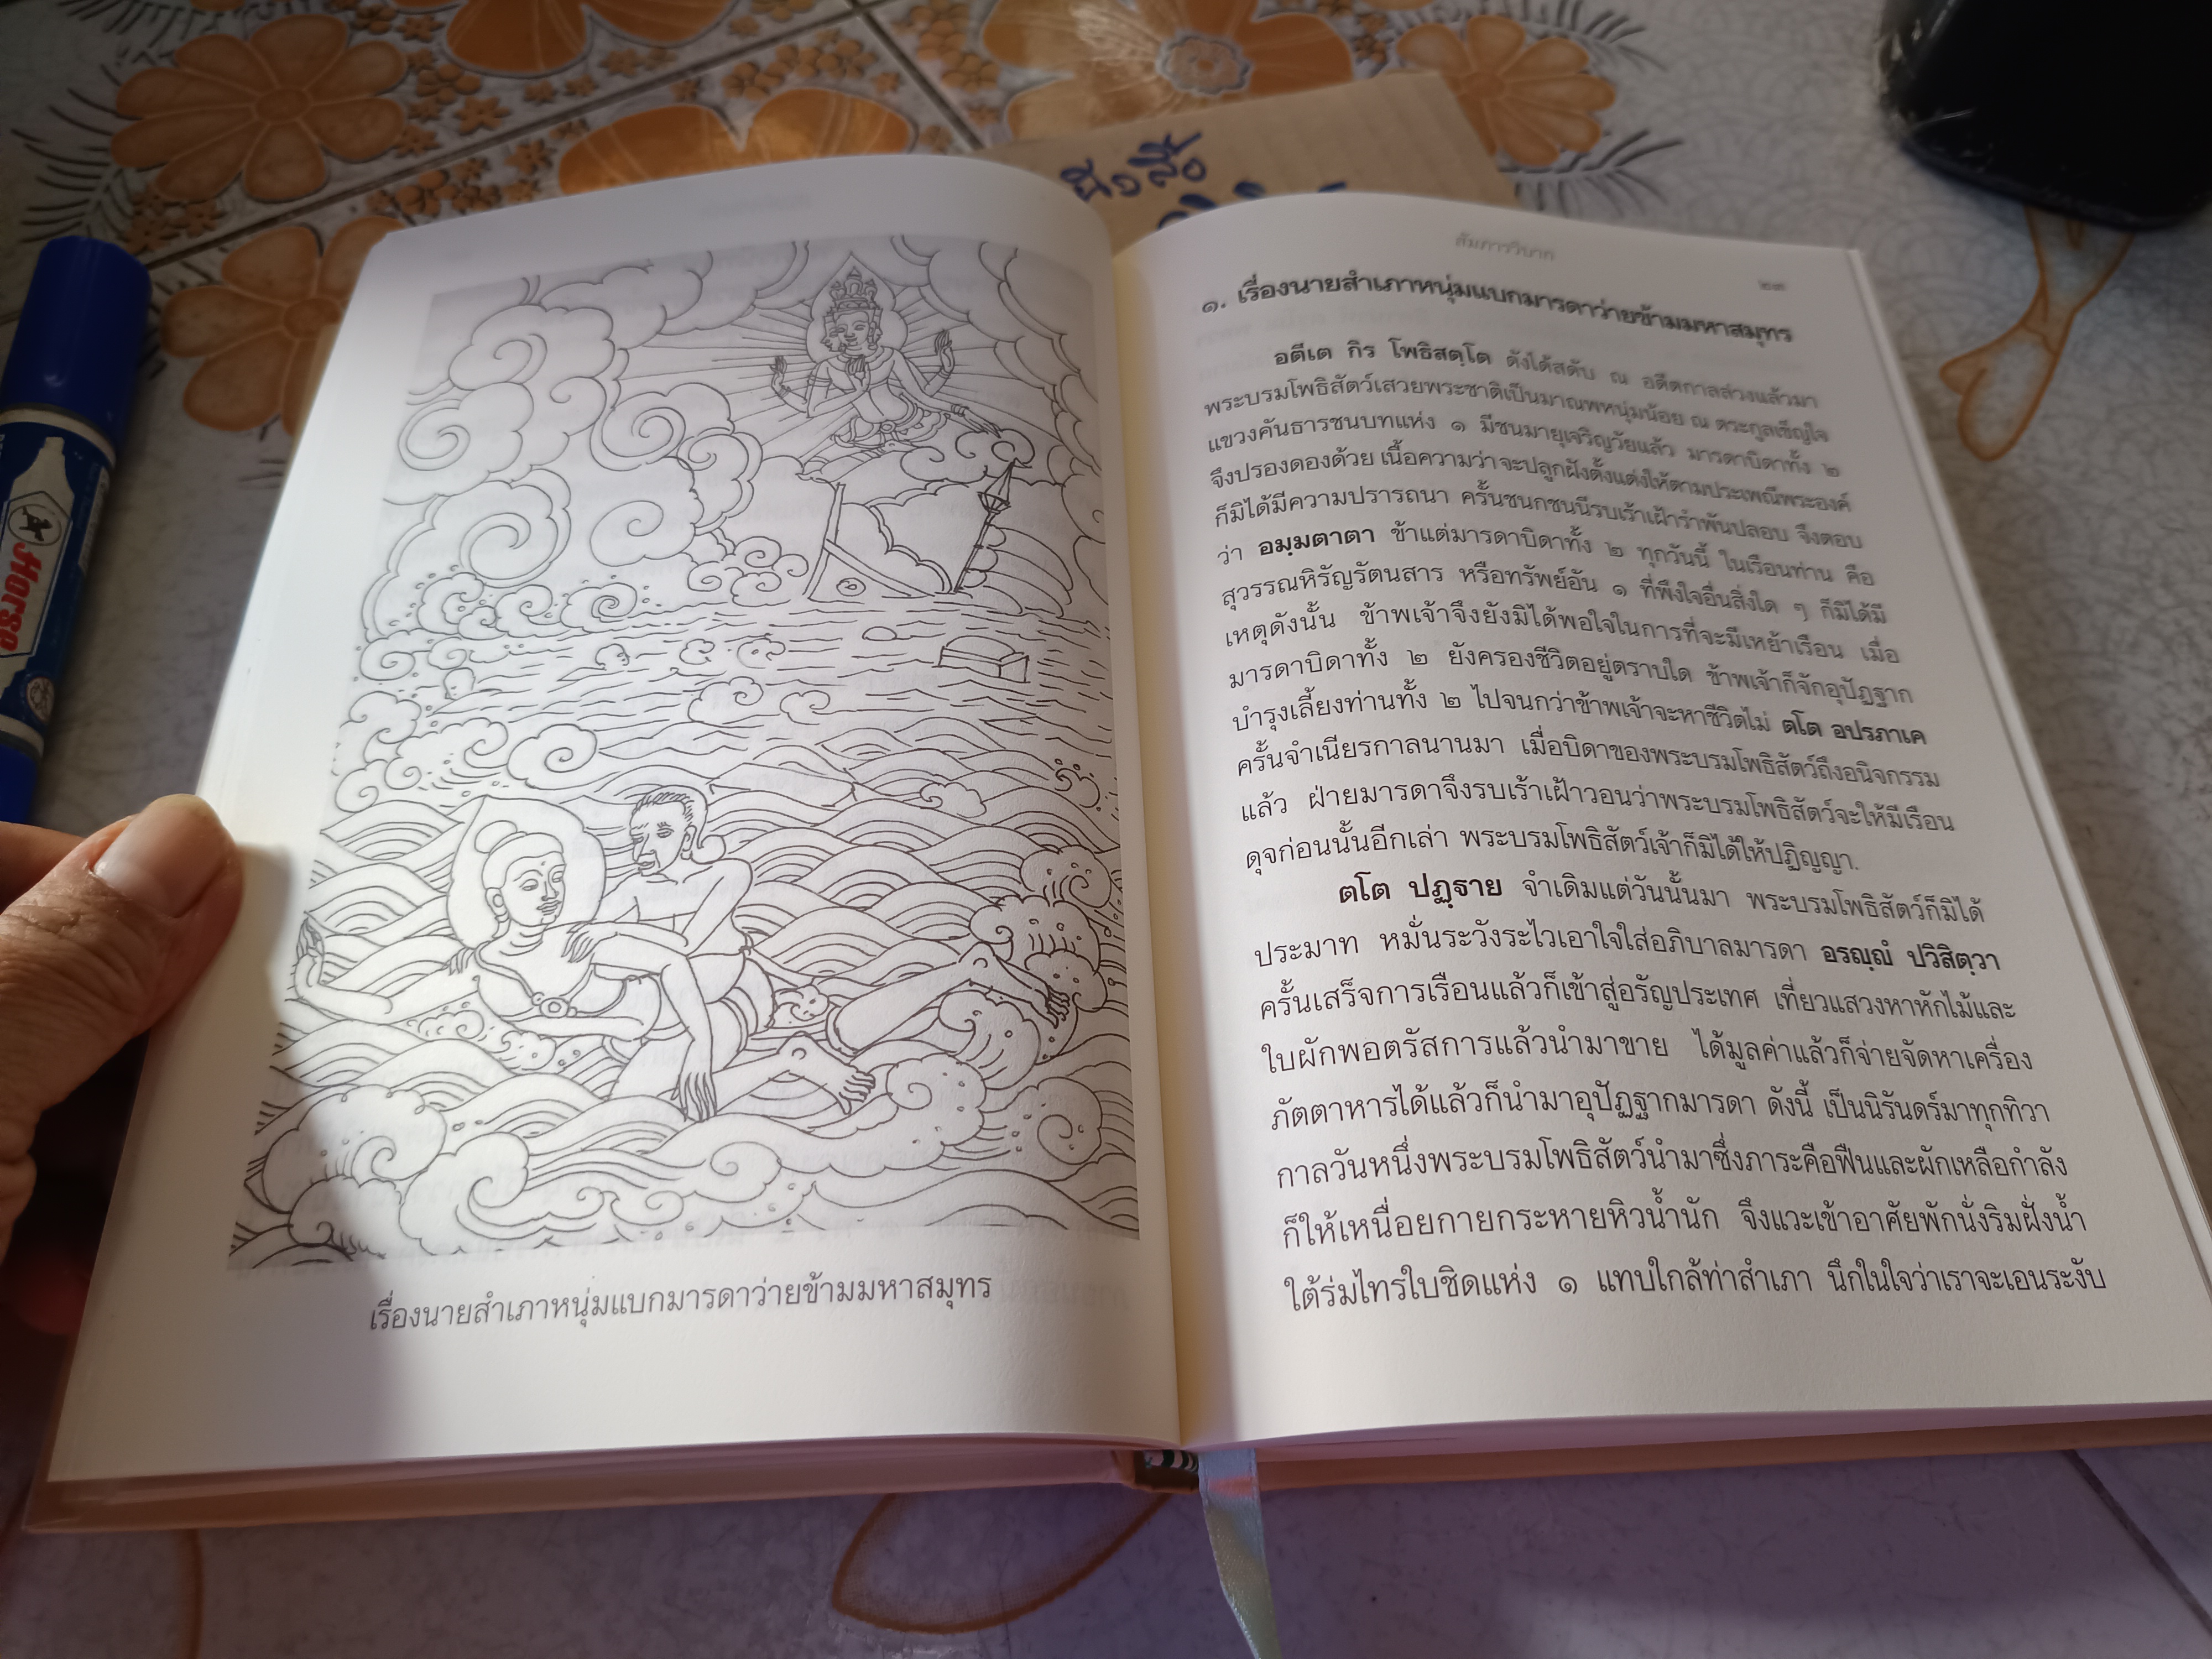 Horse
หังสือ
เรื่องนายสำเภาหนุ่มแบกมารดาว่ายข้ามมหาสมุทร
สัมภารวิบาก
๒๓
๑. เรื่องนายสำเภาหนุ่มแบกมารดาว่ายข้ามมหาสมุทร
อตีเต กิร โพธิสตฺโต ดังได้สดับ ณ อดีตกาลล่วงแล้วมา
พระบรมโพธิสัตว์เสวยพระชาติเป็นมาณพหนุ่มน้อย ณ ตระกูลเข็ญใจ
แขวงคันธารชนบทแห่ง ๑ มีชนมายุเจริญวัยแล้ว มารดาบิดาทั้ง ๒
จึงปรองดองด้วย เนื้อความว่าจะปลูกฝังตั้งแต่งให้ตามประเพณีพระองค์
ก็มิได้มีความปรารถนา ครั้นชนกชนนีรบเร้าเฝ้ารำพันปลอบ จึงตอบ
ว่า อมฺมตาตา ข้าแต่มารดาบิดาทั้ง ๒ ทุกวันนี้ ในเรือนท่าน คือ
สุวรรณหิรัญรัตนสาร หรือทรัพย์อัน ๑ ที่พึงใจอื่นสิ่งใด ๆ ก็มิได้มี
เหตุดังนั้น ข้าพเจ้าจึงยังมิได้พอใจในการที่จะมีเหย้าเรือน เมื่อ
มารดาบิดาทั้ง ๒ ยังครองชีวิตอยู่ตราบใด ข้าพเจ้าก็จักอุปัฏฐาก
บำรุงเลี้ยงท่านทั้ง ๒ ไปจนกว่าข้าพเจ้าจะหาชีวิตไม่ ตโต อปรภาเค
ครั้นจำเนียรกาลนานมา เมื่อบิดาของพระบรมโพธิสัตว์ถึงอนิจกรรม
แล้ว ฝ่ายมารดาจึงรบเร้าเฝ้าวอนว่าพระบรมโพธิสัตว์จะให้มีเรือน
ดุจก่อนนั้นอีกเล่า พระบรมโพธิสัตว์เจ้าก็มิได้ให้ปฏิญญา.
ตโต ปฏฺฐาย จำเดิมแต่วันนั้นมา พระบรมโพธิสัตว์ก็มิได้
ประมาท หมั่นระวังระไวเอาใจใส่อภิบาลมารดา อรญฺญํ ปวิสิตฺวา
ครั้นเสร็จการเรือนแล้วก็เข้าสู่อรัญประเทศ เที่ยวแสวงหาหักไม้และ
ใบผักพอตรัสการแล้วนำมาขาย ได้มูลค่าแล้วก็จ่ายจัดหาเครื่อง
ภัตตาหารได้แล้วก็นำมาอุปัฏฐากมารดา ดังนี้ เป็นนิรันดร์มาทุกทิวา
กาลวันหนึ่งพระบรมโพธิสัตว์นำมาซึ่งภาระคือฟืนและผักเหลือกำลัง
ก็ให้เหนื่อยกายกระหายหิวน้ำนัก จึงแวะเข้าอาศัยพักนั่งริมฝั่งน้ำ
ใต้ร่มไทรใบชิดแห่ง ๑ แทบใกล้ท่าสำเภา นึกในใจว่าเราจะเอนระงับ